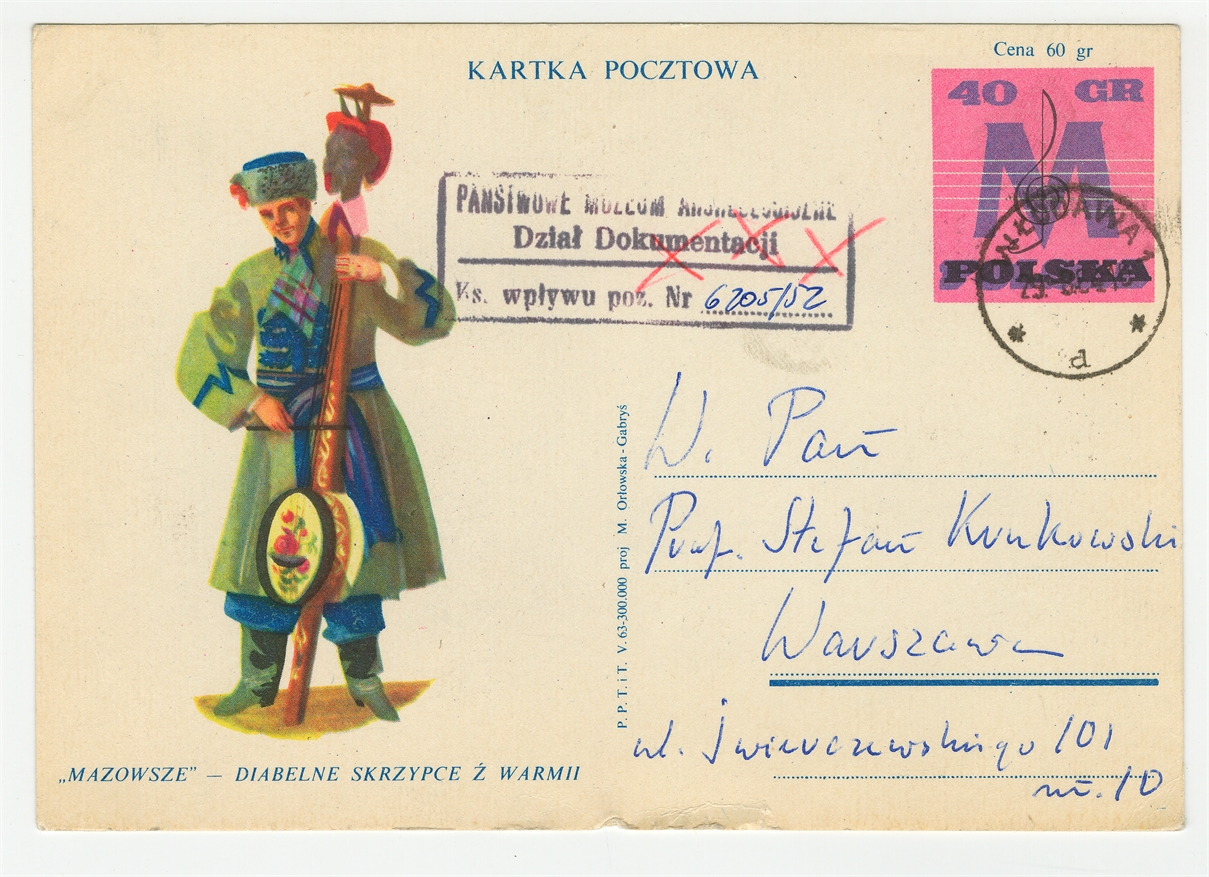 Cena 60 gr
KARTKA POCZTOWA
40 GR
M
POLSKA
PAŃSTWOWE MUZEUM ARCHEOLOGICZNE
Dział Dokumentacji
Ks. wpływu poz. Nr 6205/52
WŁODAWA 1
d
W. Pan
Prof. Stefan Krukowski
Warszawa
ul. Świerczewskiego 101
m. 10
P. P. T. i T. V. 63-300.000 proj M. Orłowska-Gabryś
„MAZOWSZE” — DIABELNE SKRZYPCE Z WARMII